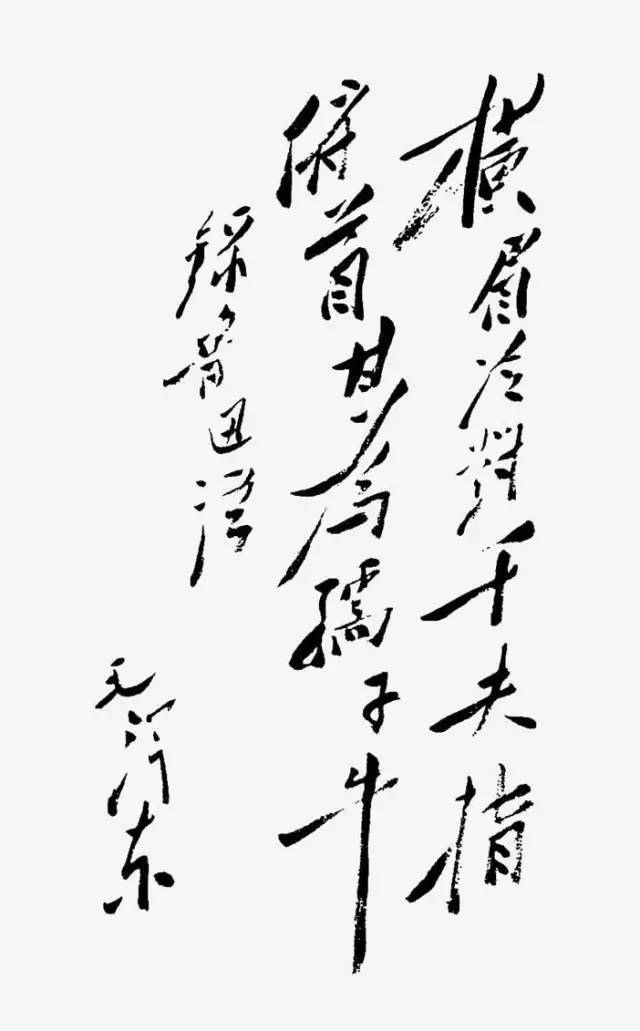 横眉冷對千夫指
俯首甘为孺子牛
録魯迅诗
毛泽东